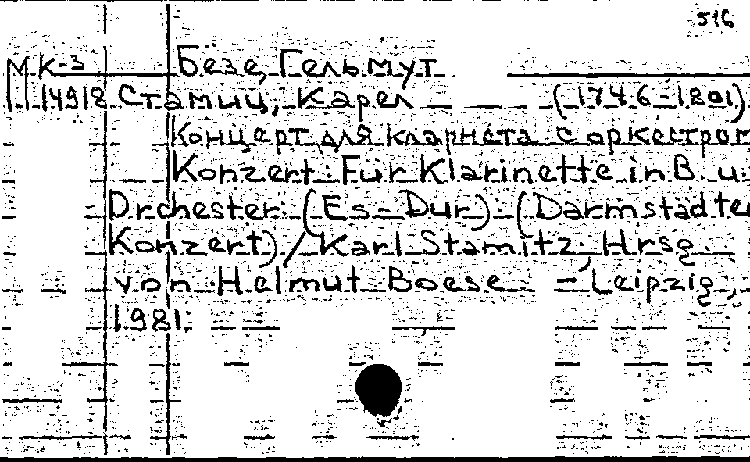 516
МК-3 Бёзе, Гельмут
14912 Стамиц, Карел (1746-1801)
Концерт для кларнета с оркестром
Konzert: Für Klarinette in B. u.
Orchester: (Es-Dur): (Darmstädter
Konzert) / Karl Stamitz; Hrsg.
von Helmut Boese - Leipzig,
1981.